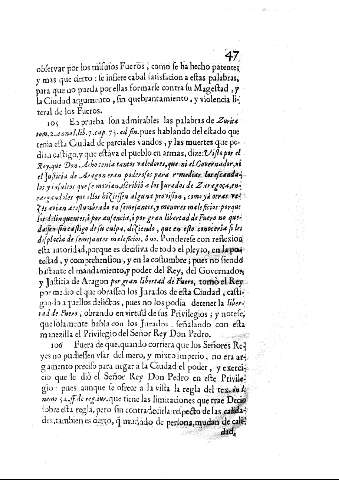 47
observar por los mismos Fueros, como se ha hecho patente,
y mas que cierto: se infiere cabal satisfacion a estas palabras,
para que no pueda por ellas formarse contra su Magestad, y
la Ciudad argumento, sin quebrantamiento, y violencia li-
teral de los Fueros.
105 En prueba son admirables las palabras de Zurita
tom. 2. annal. lib. 7. cap. 75. ad fin. pues hablando del estado que
tenia esta Ciudad de parciales vandos, y las muertes que po-
dian castigo, y que estava el pueblo en armas, dize: Visto por el
Rey, que Don tenia tantos valedores, que ni el Governador, ni
el Justicia de Aragon eran poderosos para remediar los
y insultos que se movian, escribiò a los Jurados de Zaragoza,
que ellos hiziessen alguna provision, como yà otras ve-
zes avian acostumbrado en semejantes, y menores maleficios porque
los delinquentes, ò por ausencia, ò por gran libertad de Fuero no que-
dassen sin castigo de su culpa, diziendo, que en esto conocería si les
desplacia de semejantes maleficios, &c. Ponderese con reflexion
esta autoridad, porque es decisiva de todo el pleyto, en la po-
testad, y comprehension, y en la costumbre; pues no siendo
bastante el mandamiento, y poder del Rey, del Governador,
y Justicia de Aragon por gran libertad de Fuero, tomò el Rey
por medio el que obrassen los Jurados de esta Ciudad, casti-
gando aquellos delictos, pues no los podia detener la liber-
tad de Fuero, obrando en virtud de sus Privilegios; y notese,
que solamente habla con los Jurados, señalando con esta
manezilla el Privilegio del Señor Rey Don Pedro.
106 Fuera de que, quando corriera que los Señores Re-
yes no pudiessen vsar del mero, y mixto imperio, no era ar-
gumento preciso para negar a la Ciudad el poder, y exerci-
cio que le diò el Señor Rey Don Pedro en este Privile-
gio: pues aunque se ofrece a la vista la regla del tex.
ff. de reg. iur. que tiene las limitaciones que trae Decio
sobre esta regla, pero sin contradecirla respecto de las calida-
des, tambien es cierto, q̃ mudado de persona, mudan de cali-
dad,